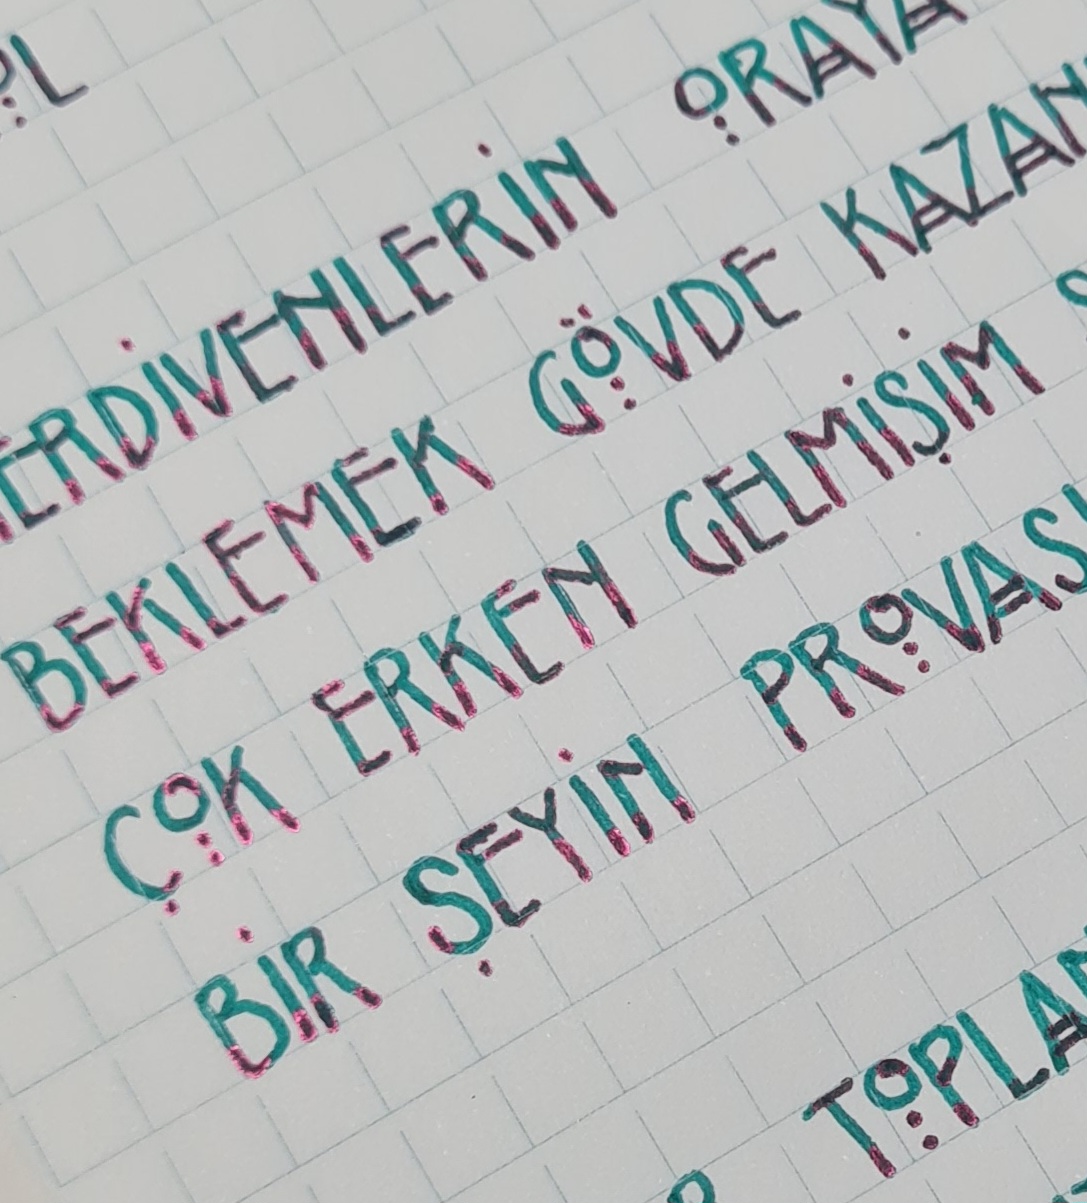 MERDİVENLERİN ORAYA
BEKLEMEK GÖVDE KAZAN
ÇOK ERKEN GELMİŞİM
BİR ŞEYİN PROVASI
TOPLAN